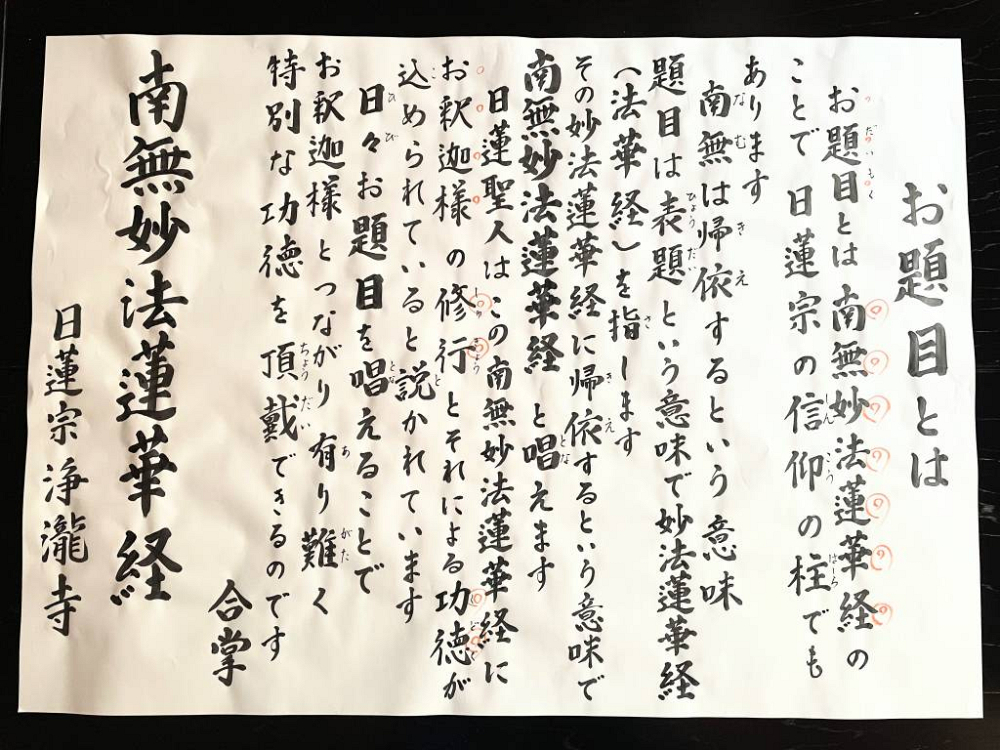 お題目とは
お題目とは南無妙法蓮華経の
ことで日蓮宗の信仰の柱でも
あります
南無は帰依するという意味
題目は表題という意味で妙法蓮華経
(法華経)を指します
その妙法蓮華経に帰依するという意味で
南無妙法蓮華経と唱えます
日蓮聖人はこの南無妙法蓮華経に
お釈迦様の修行とそれによる功徳が
込められていると説かれています
日々お題目を唱えることで
お釈迦様とつながり有り難く
特別な功徳を頂戴できるのです
合掌
南無妙法蓮華経
日蓮宗浄瀧寺